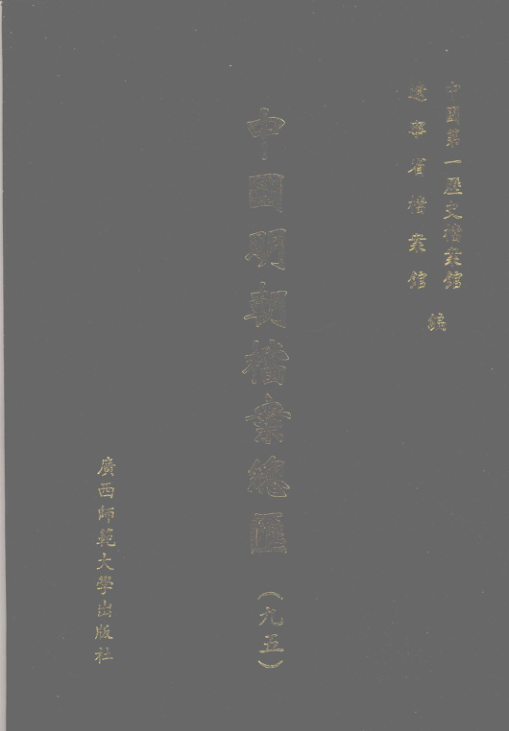 中國第一歷史檔案館
遼寧省檔案館
編
中國明朝檔案總匯
（九五）
廣西師範大學出版社